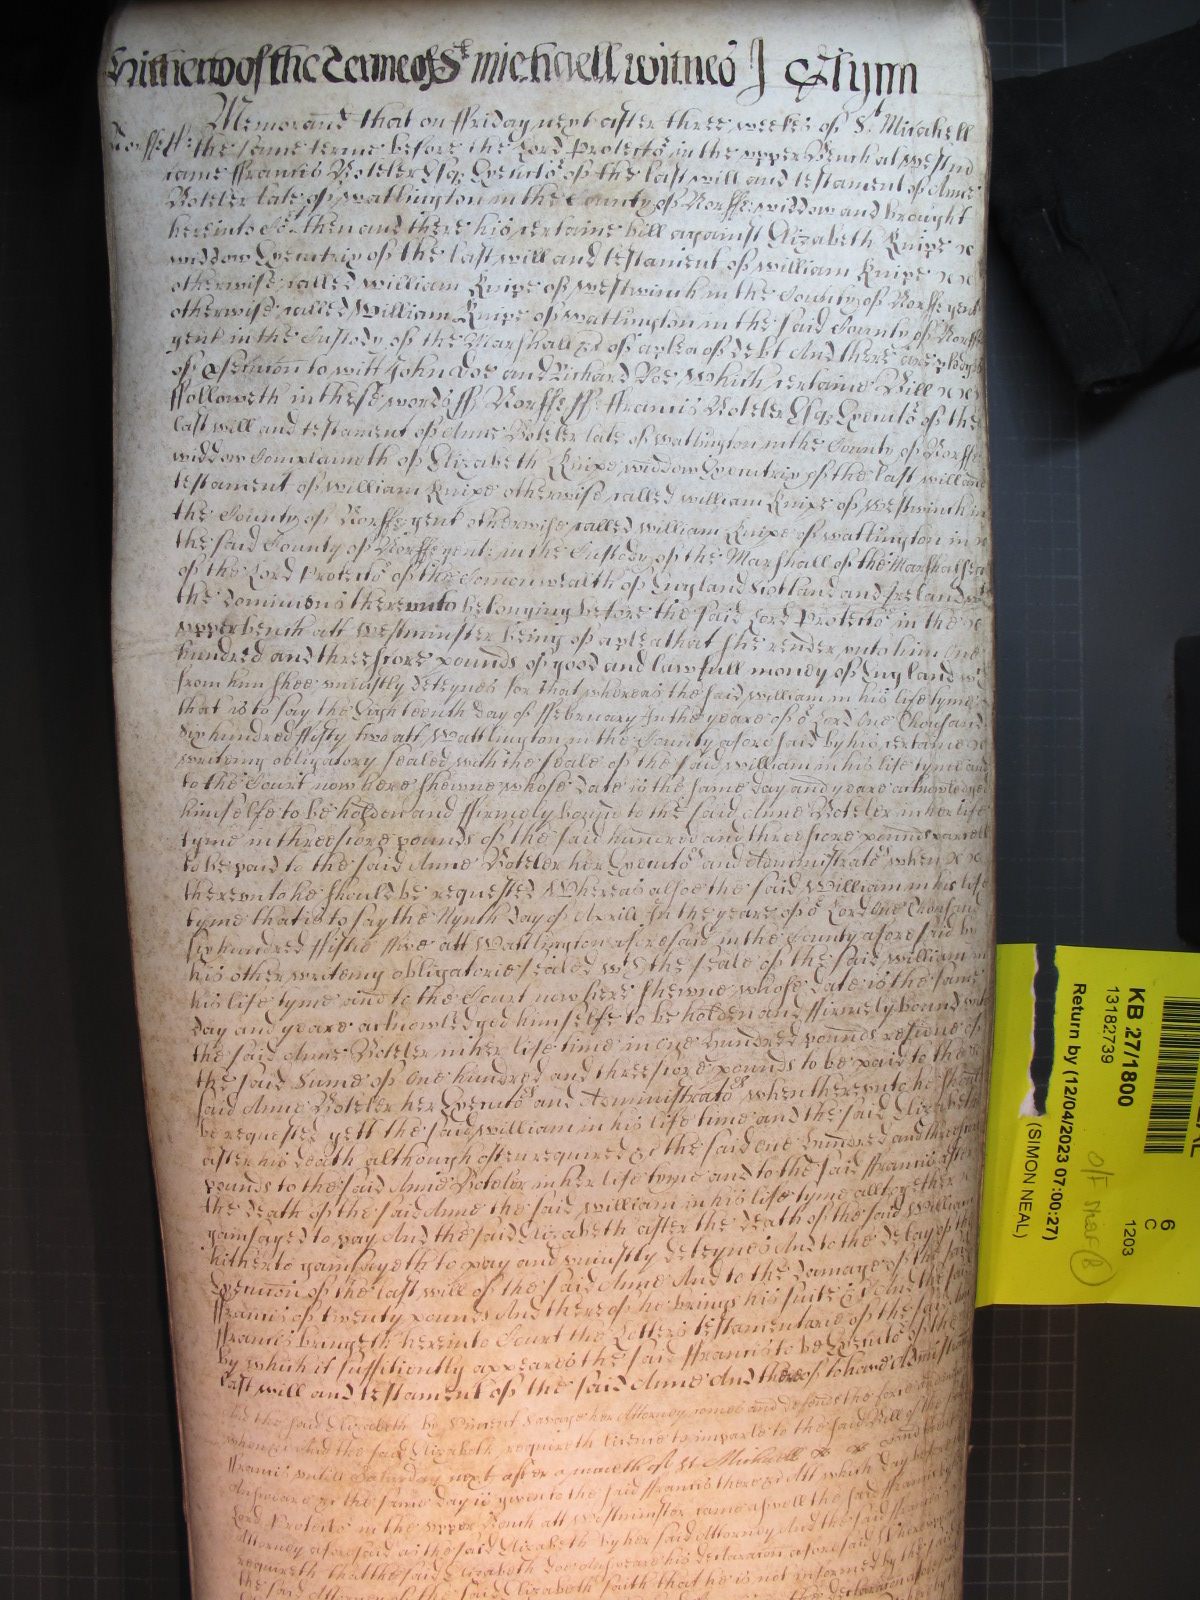 Hitherto of the Terme of St. Michaell witnes J Glynn
Memorand that on ffriday next after three weekes of St. Micahell
Norff ss: the same terme before the Lord Protector in the upper Bench at Westm
came ffrancis Boteler Esq Executor of the last will and testament of Anne
Boteler late of Watlington in the County of Norff widdow and brought
here into Co then and there his certaine bill against Elizabeth Knipe x
widdow Executrix of the last will and testament of William Knipe x x
otherwise called William Knipe of Westwinch in the County of Norff gent
otherwise called William Knipe of Watlington in the said County of Norff
gent in the Custody of the Marshall &c of a plea of debt And there are pledges
of to witt John Doe and Richard Roe Which certaine Bill x x
ffolloweth in these words ss Norff ss ffrancis Boteler Esq Executor of the
last will and testament of Anne Boteler late of Watlington in the County of Norff
widdow Complaineth of Elizabeth Knipe widdow Executrix of the last will and
testament of William Knipe otherwise called William Knipe of Westwinch in
the County of Norff gent otherwise called William Knipe of Watlington in
the said County of Norff gent: in the Custody of the Marshall of the Marshalsea
of the Lord Protector of the Comonwealth of England Scotland and Ireland
the dominions thereunto belonging before the said Lord Protector in the x
upper bench att Westminster being of a plea that she render unto him One
hundred and threescore pounds of good and lawfull money of England
from him shee uniustly deteynes for that whereas the said William in his life tyme
that is to say the Eighteenth day of ffebruary In the yeare of or Lord One Thousand
Six hundred ffifty two att Wattlington in the County aforesaid by his certaine
writeing obligatory sealed with the seale of the said William in his life tyme and
to the Court now here shewne whose date is the same day and yeare acknowledged
himselfe to be holden and ffirmely bound to the said Anne Boteler in her life
tyme in threescore pounds of the said hundred and threescore pounds parcell
to be paid to the said Anne Boteler her Executor and Administrator when x x
thereunto he should be requested Whereas alsoe the said William in his life
tyme that is to say the Nynth day of Aprill In the yeare of or Lord One Thousand
six hundred ffiftie ffive att Wattlington aforesaid in the County aforesaid by
his other writeing obligatorie sealed wth the seale of the said William in
his life tyme and to the Court now here shewne whose date is the same
day and yeare acknowledged himselfe to be holden and ffirmely bound
the said Anne Boteler in her life time in One hundred pounds residue of
the said Sume of One hundred and threescore pounds to be paid to the
said Anne Boteler her Executor and Administrator when thereunto he should
be requested yett the said William in his life time and the said Elizabeth
after his death although often required &c the said one hundred and threescore
pounds to the said Anne Boteler in her life tyme and to the said ffrancis after
the death of the said Anne the said William in his life tyme alltogether
gainsayed to pay And the said Elizabeth after the death of the said William
hitherto gainsayeth to pay and uniustly deteynes And to the delay of the
Execution of the last will of the said Anne And to the damage of the said
ffrancis of twenty pounds And thereof he brings his suite &c And the said
ffrancis bringeth here into Court the Letters testamentarie of the said Anne
by which it sufficiently appeares the said ffrancis to be Executor of the
last will and testament of the said Anne And thereof to have Administration
And the said Elizabeth by Vincent Savage her Attorney comes and defends the force and
when &c And the said Elizabeth requireth licence to imparle to the said Bill of the
ffrancis untill Saturday next after a moneth of St Michaell
the same Day is given to the said ffrancis there &c Att which Day before the
Lord Protector in the upper Bench att Westminster came aswell the said ffrancis by
Attorney aforesaid as the said Elizabeth by her said Attorney And the said ffrancis
requireth that the said Elizabeth doe answeare his declaration aforesaid Whereupon
the said Attorney of the said Elizabeth saith that he is not informed by the said
KB 27/1800
13182739
Return by (12/04/2023 07:00:27)
(SIMON NEAL)
6
C
1203